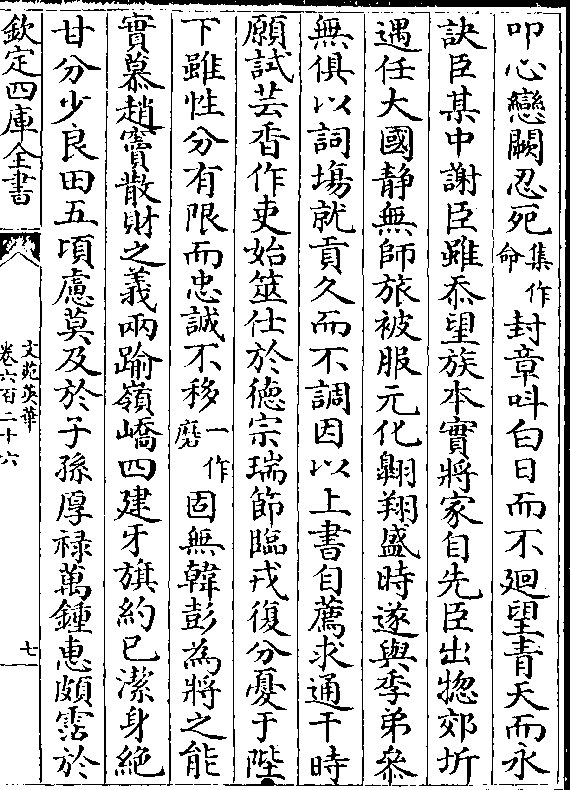 叩心戀闕忍死集作命封章叫白日而不迴望青天而永
訣臣某中謝臣雖忝望族本實將家自先臣出揔郊圻
遇任大國静無師旅被服元化翺翔盛時遂與季弟叅
無俱以詞塲就貢久而不調因以上書自薦求通干時
願試芸香作吏始筮仕於徳宗瑞節臨戎復分憂于陛
下雖性分有限而忠誠不移一作磨固無韓彭為將之能
實慕趙竇散財之義兩踰嶺嶠四建牙旗約己潔身絶
甘分少良田五頃慮莫及於子孫厚禄萬鍾惠頗霑於
欽定四庫全書
文苑英華
卷六百二十六
七